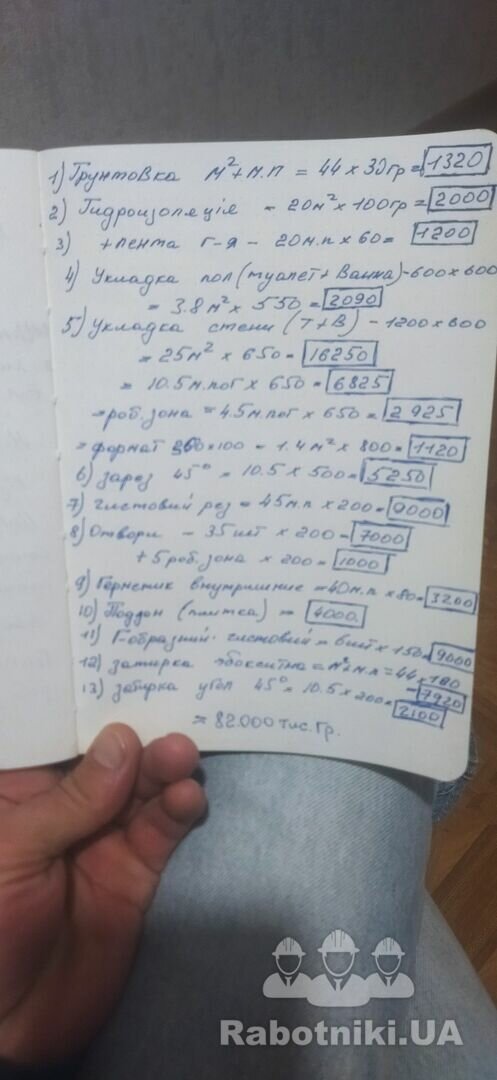 1) Грунтовка м²+м.п = 44 x 30гр = 1320
2) Гидроизоляція - 20м² x 100гр = 2000
3) + лента г-я - 20м.п x 60 = 1200
4) Укладка пол (туалет + Ванна) - 600 x 600
= 3.8м² x 550 = 2090
5) Укладка стени (Т+В) - 1200 x 600
= 25м² x 650 = 16250
= 10.5м.пог x 650 = 6825
= роб. зона = 4.5м.пог x 650 = 2925
= формат x100 - 1.4м² x 800 = 1120
6) зарез 45° = 10.5 x 500 = 5250
7) чистовий рез = 45м.п x 200 = 9000
8) Отвори - 35шт x 200 = 7000
+ 5 роб. зона x 200 = 1000
9) Герметик внутришние = 40м.п x 80 = 3200
10) Поддон (плитка) = 4000
11) Г-образний чистовий = 6шт x = 9000
12) затирка эбокситна = м²+м.п = 44 x 180
= 7920
13) затирка угол 45° = 10.5 x 200 = 2100
= 82.000 тис. гр.
Rabotniki.UA